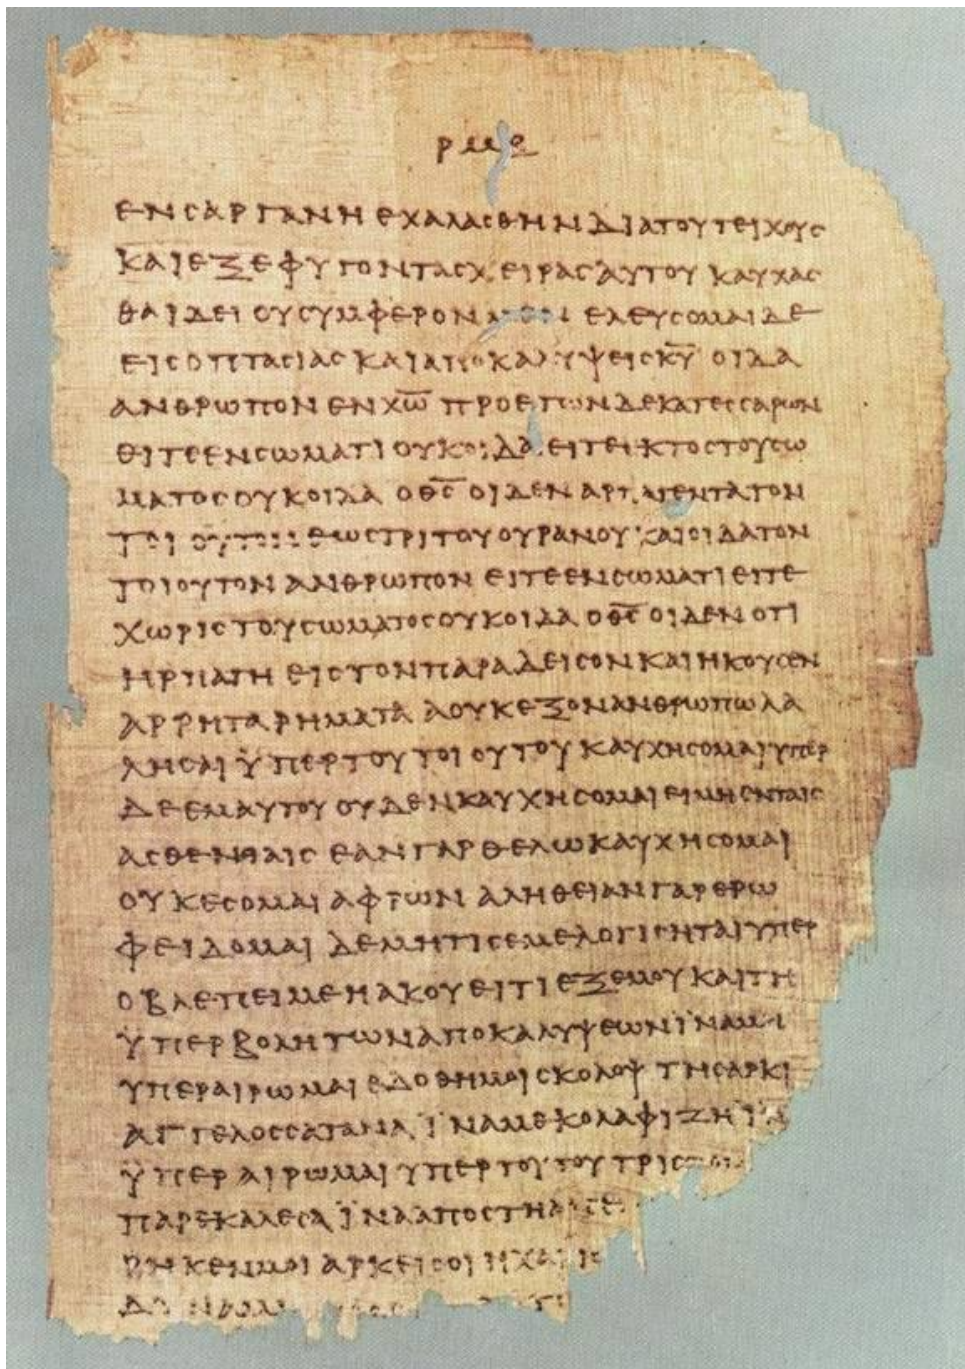 ρμε
ενσαργανηεχαλασθηνδιατουτειχους
καιεξεφυγοντασχειρασαυτου καυχασ
θαιδει ουσυμφερονμεν ελευσομαιδε
εισοπτασιασκαιαποκαλυψεισκ̅υ̅ οιδα
ανθρωπονενχ̅ω̅ προετωνδεκατεσσαρων
ειτεενσωματιουκοιδαειτεεκτοστουσω
ματοσουκοιδα οθ̅σ̅ οιδεναρπαγεντατον
τοιουτονεωστριτουουρανου καιοιδατον
τοιουτονανθρωπον ειτεενσωματιειτε
χωριστουσωματοσουκοιδα οθ̅σ̅οιδενοτι
ηρπαγη ειστονπαραδεισονκαιηκουσεν
αρρηταρηματα αουκεξονανθρωπωλα
λησαιϋπερτουτοιουτουκαυχησομαιυπερ
δεεμαυτουουδενκαυχησομαιειμηενταισ
ασθενειαισ εανγαρθελωκαυχησομαι
ουκεσομαιαφρων αληθειανγαρερω
φειδομαιδεμητισεμελογισηταιυπερ
οβλεπειμεηακουειτιεξεμουκαιτη
ϋπερβοληтωναποκαλυψεωνϊναμη
υπεραιρωμαιεδοθημοισκολοψτησαρκι
αγγελοσσατανα ϊναμεκολαφιζηϊνα
ϋπεραιρωμαιυπερτουτουτρισ
παρεκαλεσαϊνααποστη
ρηκενμοιαρκεισοιηχαρισ